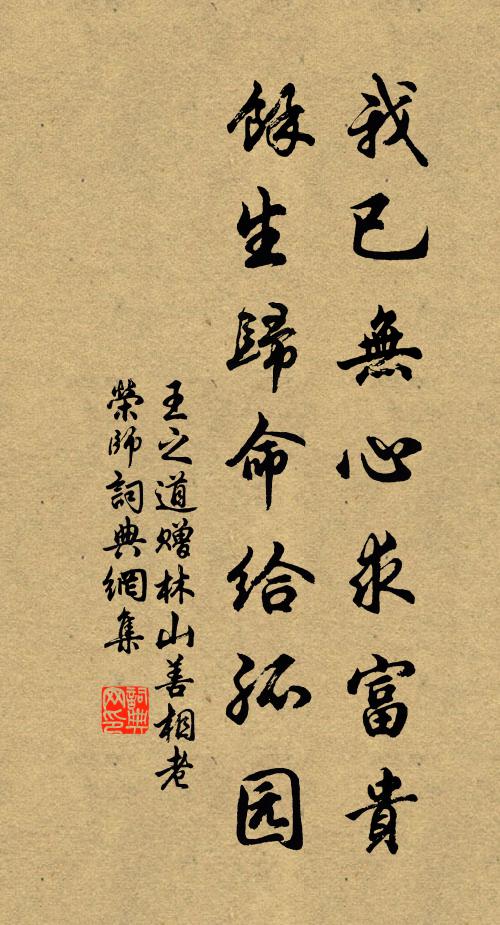 我已無心求富貴
餘生歸命給孤园
王之道赠林山善相老
榮师詞典網集
詞典
网印